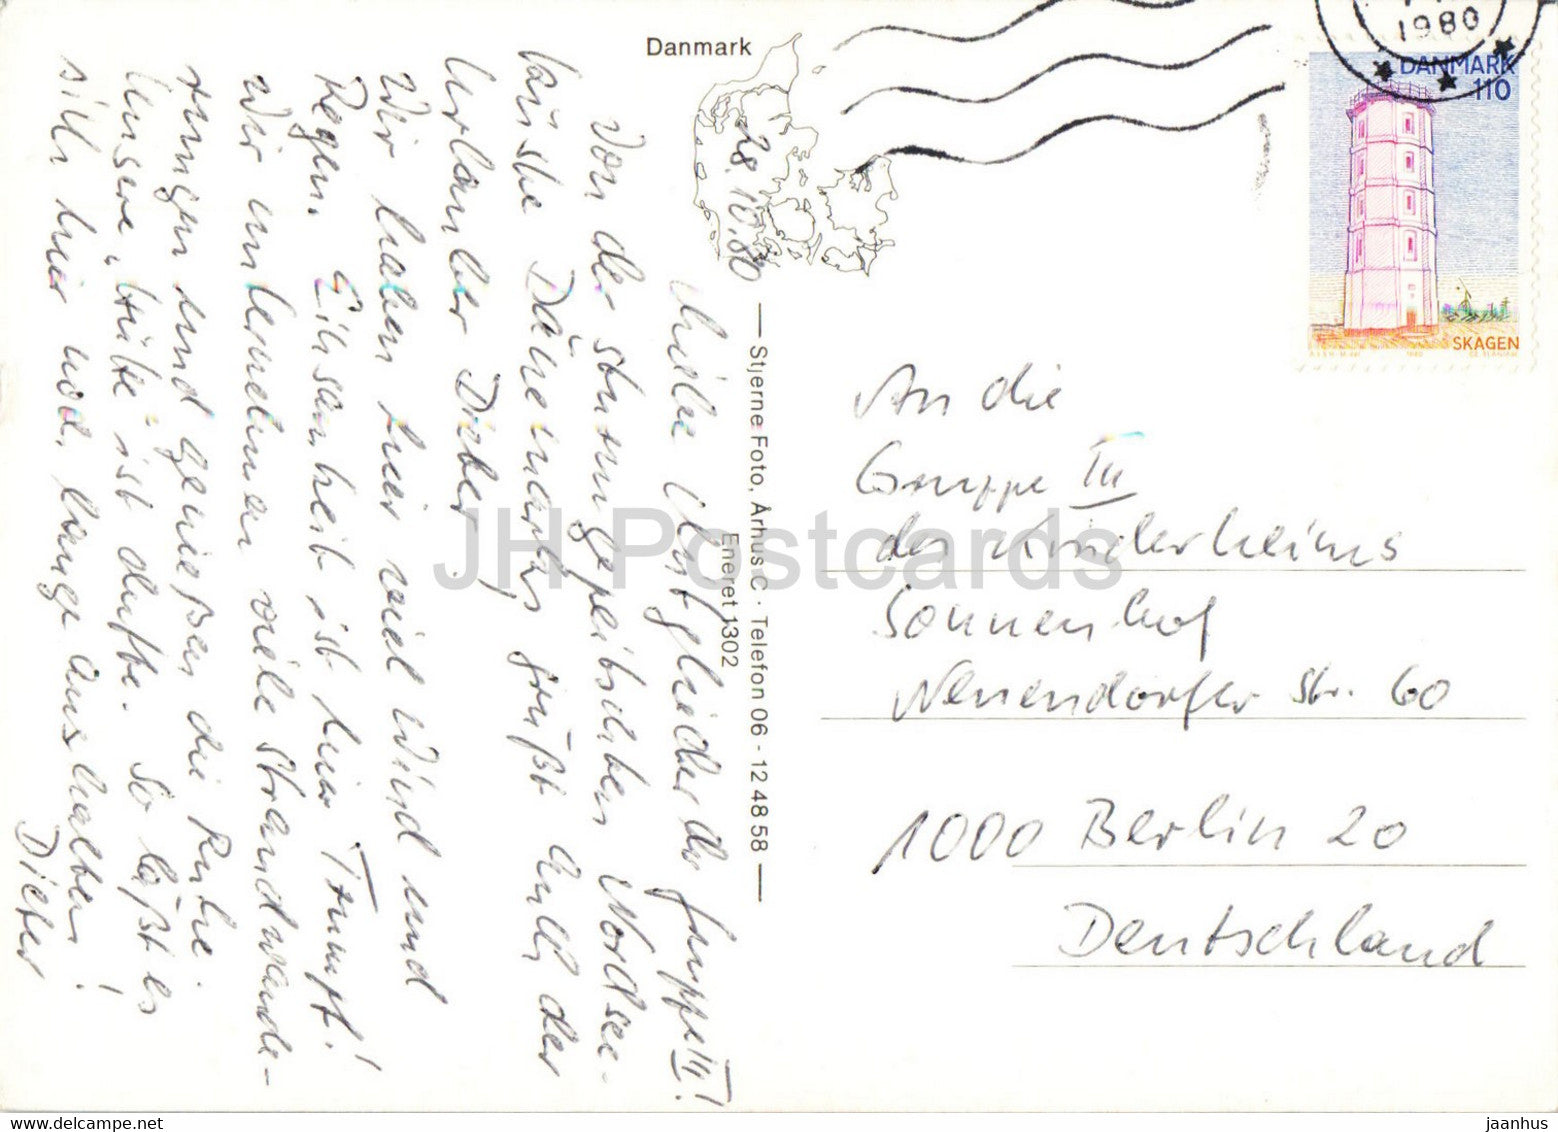 Danmark
1980
DANMARK
110
SKAGEN
28.10.80
Liebe Mitglieder der Gruppe III!
Von der sturmgepeitschten Nordsee-
küste Dänemarks grüßt Euch der
Urlauber Dieter.
Wir haben hier viel Wind und
Regen. Einsamkeit ist hier Trumpf!
Wir unternehmen viele Strandwande-
rungen und genießen die Ruhe.
Unsere „Hütte" ist dufte. So läßt es
sich hier noch lange aushalten!
Dieter
Stjerne Foto, Århus C · Telefon 06 - 12 48 58
Eneret 1302
An die
Gruppe III
des Kinderheims
Sonnenhof
Neuendorfer Str. 60
1000 Berlin 20
Deutschland
JH Postcards
jaanhus